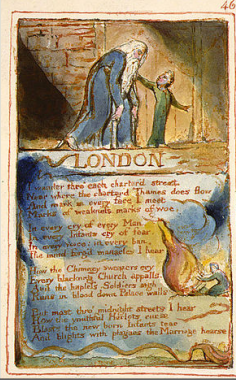 46
LONDON
I wander thro each charter'd street,
Near where the charter'd Thames does flow
And mark in every face I meet
Marks of weakness marks of woe.
In every cry of every Man,
In every Infants cry of fear,
In every voice; in every ban,
The mind forg'd manacles I hear
How the Chimney sweepers cry
Every blackning Church appalls,
And the hapless Soldiers sigh
Runs in blood down Palace walls
But most thro' midnight streets I hear
How the youthful Harlots curse
Blasts the new born Infants tear
And blights with plagues the Marriage hearse